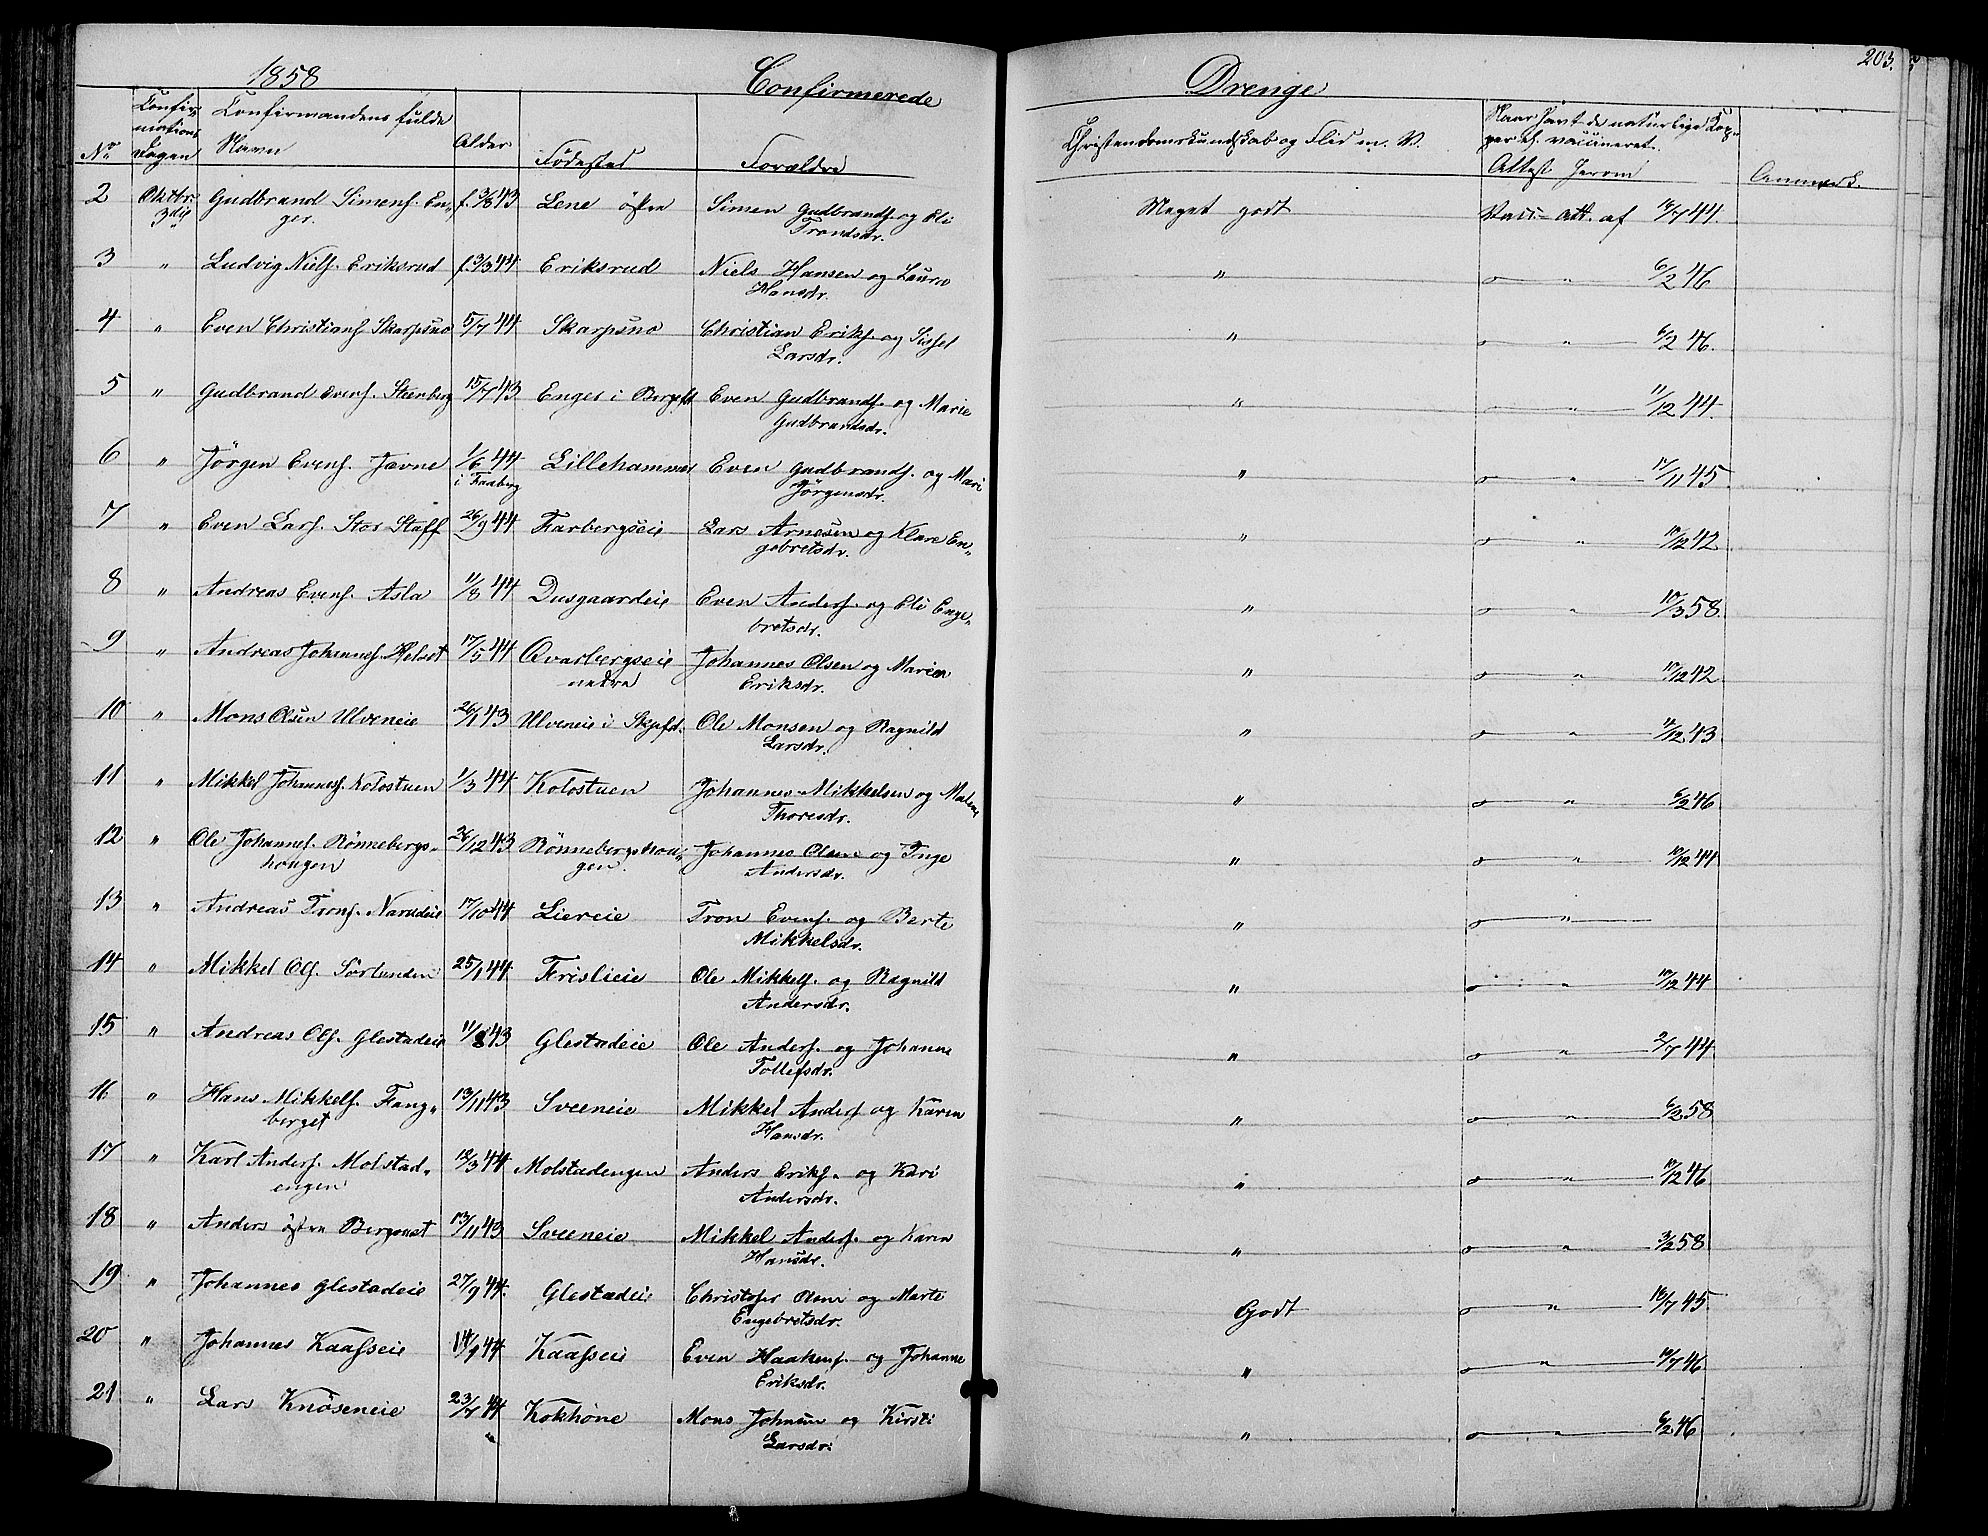 1858 Confirmerede Drenge 203.
No. Confirmations Dagen Confirmandens fulde Navn Alder Födested Forældre Christendomskundskab og Flid m. V. Naar havt de naturlige Kopper el. vaccineret. Attest derom Anmærk.
2 Oktbr. 3die Gudbrand Simens. En- f. 3/8 43 Lene östre Simen Gudbrands. og Eli Meget godt Vacc. att. af 16/7 44.
ger. Trondsdr.
3 " Ludvig Niels. Eriksrud f. 3/3 44 Eriksrud Niels Hansen og Laura " o " 6/2 46
Hansdr.
4 " Even Christians. Skarpsno 5/7 44 Skarpsno Christian Eriks. og Sissel " o " 6/2 46.
Larsdr.
5 " Gudbrand Evens. Steenberg 15/7 43 Enger i Even Gudbrands. og Marie " o " 11/12 44.
Gudbrandsdr.
6 " Jörgen Evens. Jevne 1/6 44 Lillehammer Even Gudbrands. og Mari " o " 17/11 45
i Faaberg Jörgensdr.
7 " Even Lars. Stor Staff 26/9 44 Farbergseie Lars Arnesen og Klare En- " o " 10/12 42
gebretsdr.
8 " Andreas Evens. Asla 11/8 44 Dusgaardeie Even Anders. og Eli Enge- " o " 10/3 58.
bretsdr.
9 " Andreas Johannes. Helset 17/5 44 Qvarbergseie Johannes Olsen og Maria " o " 10/12 42
nedre Eriksdr.
10 " Mons Olsen Ulveneie 26/1 43 Ulveneie i Ole Monsen og Ragnild " o " 4/12 43
Larsdr.
11 " Mikkel Johannes. Kolostuen 1/3 44 Kolostuen Johannes Mikkelsen og Malene " o " 6/2 46
Thoresdr.
12 " Ole Johannes. Rönnebergs- 26/12 43 Rönnebergshou- Johannes Olsen og Inge " o " 10/12 44
hougen gen. Andersdr.
13 " Andreas Trons. Narudeie 17/10 44 Liereie Tron Evens. og Berte " o "
Mikkelsdr.
14 " Mikkel Ols. Sorlunden 25/1 44 Frislieie Ole Mikkels. og Ragnild " o " 10/12 44
Andersdr.
15 " Andreas Ols. Glestadeie 11/8 43 Glestadeie Ole Anders. og Johanne " o " 2/7 44
Tollefsdr.
16 " Hans Mikkels. Fang- 13/11 43 Sveeneie Mikkel Anders og Karen " o " 6/2 58
berget Hansdr.
17 " Karl Anders. Molstad- 12/3 44 Molstadengen Anders Eriks. og Kari " o " 10/12 46
engen Andersdr.
18 " Anders östre Bergeset 13/11 43 Sveeneie Mikkel Anders. og Karen " o " 3/2 58
Hansdr.
19 " Johannes Glestadeie 27/9 44. Glestadeie Christofer Olsen og Marte Godt o " 16/7 45
Engebretsdr.
20 " Johannes Kaasseie 14/9 44 Kaasseie Even Haakens. og Johanne " o " 14/7 46
Eriksdr.
21 " Lars Knöseneie 23/7 44 Kokhöne Mons Johnsen og Kirsti " o " 6/2 46
" Larsdr.